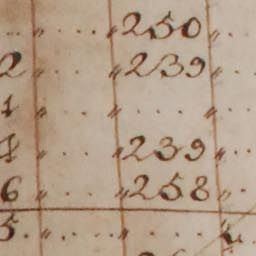 .. 〃 ... 〃250 〃 ..
2 〃 ... 〃239 〃 ..
1 〃 ... 〃 .... 〃 ..
4 〃 ... 〃239 〃 ..
6 〃 ... 〃258 〃 ..
5. 〃 .... 〃 ....